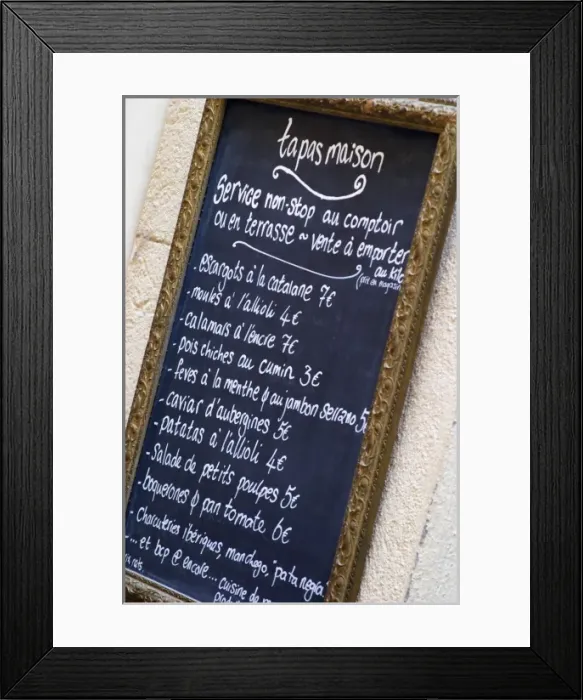 tapas maison
Service non-stop au comptoir
ou en terrasse ~ vente à emporter
au kilo
(prix en magasin)
- escargots à la catalane 7€
- moules à l'allioli 4€
- calamars à l'encre 7€
- pois chiches au cumin 3€
- feves à la menthe & au jambon serrano 5
- caviar d'aubergines 5€
- patatas à l'allioli 4€
- salade de petits poulpes 5€
- boquerones & pan tomate 6€
- charcuteries ibériques, manchego, "pata negra"
... et bcp @ encore... cuisine de